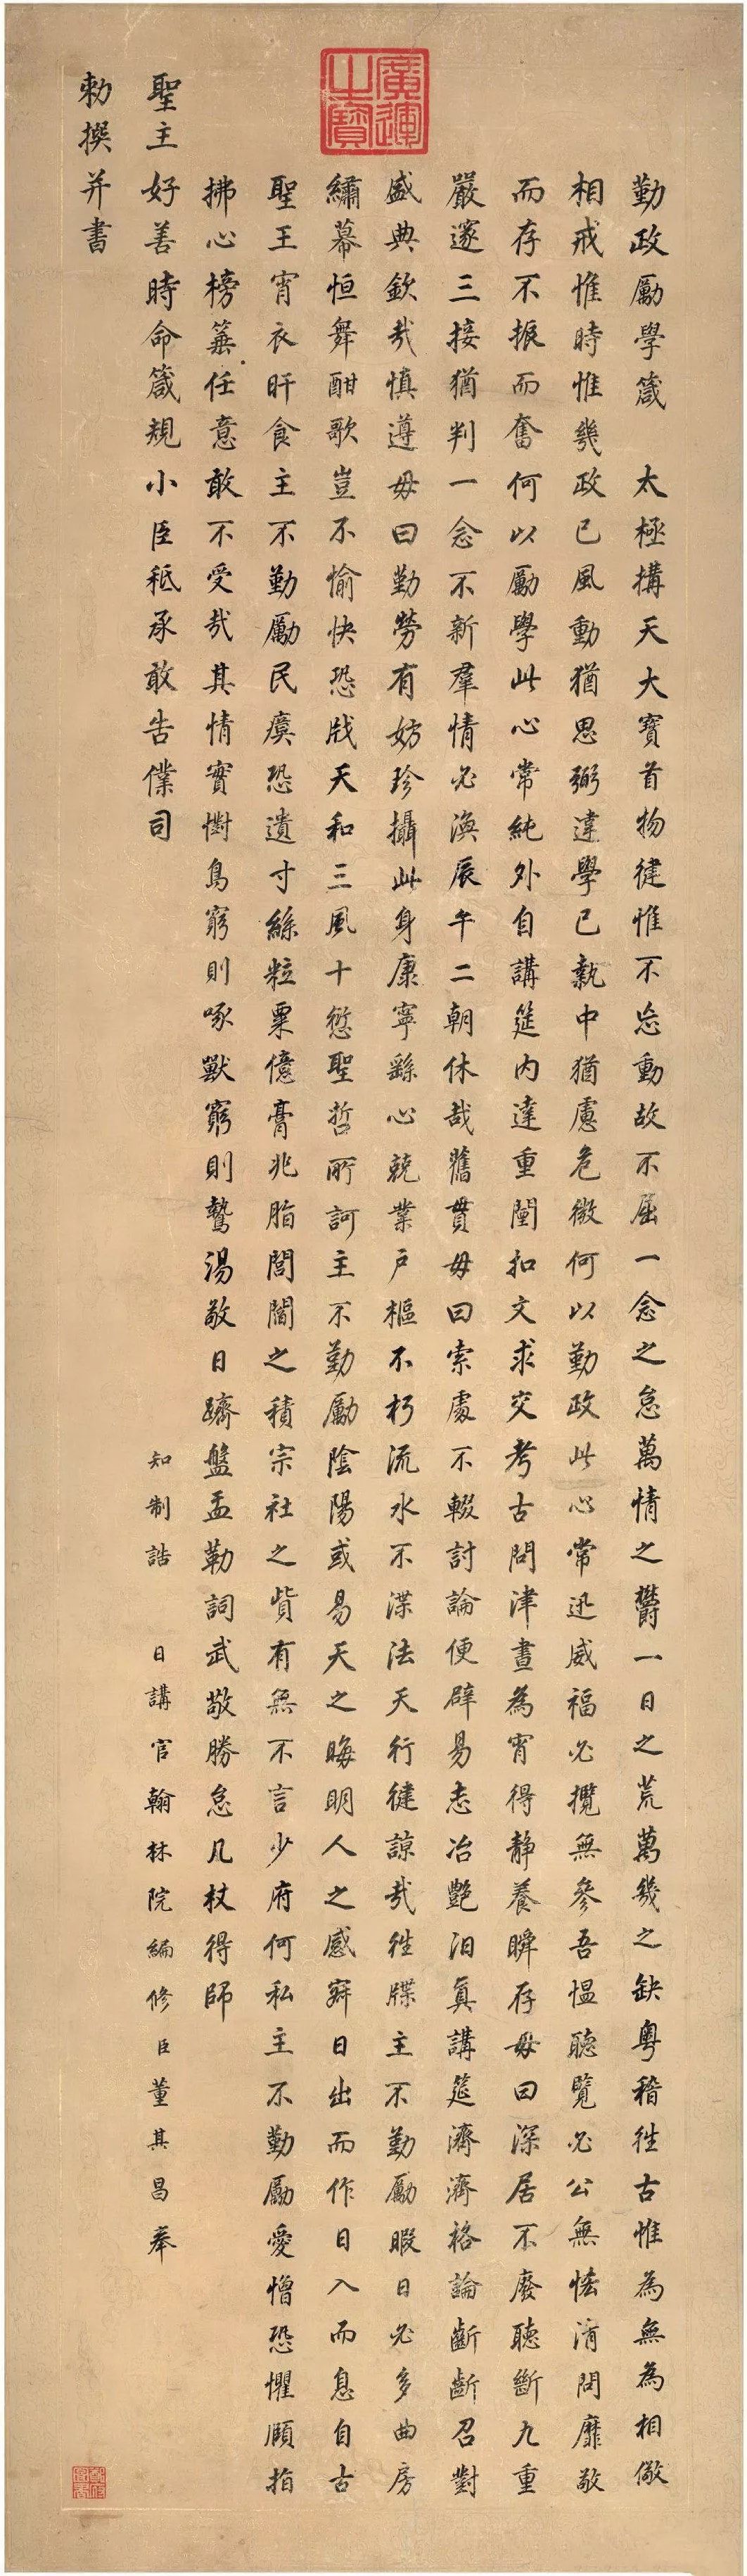 廣運之寶
勤政勵學箴　太極搆天大寶首物健惟不忘動故不屈一念之怠萬情之欝一日之荒萬幾之缺粵稽徃古惟為無為相儆
相戒惟時惟幾政已風動猶思弼違學已執中猶慮危微何以勤政此心常迅威福必攬無參吾慍聽覽必公無恡清問靡敢
而存不振而奮何以勵學此心常純外自講筵內達重闈扣文求交考古問津晝為宵得靜養瞬存毋曰深居不廢聽斷九重
嚴邃三接猶判一念不新羣情必渙辰午二朝休哉舊貫毋曰索處不輟討論便辟易志冶艷汨真講筵濟濟格論齗齗召對
盛典欽哉慎遵毋曰勤勞有妨珍攝此身康寧繇心兢業戶樞不朽流水不渫法天行健諒哉徃牒主不勤勵暇日必多曲房
繡幕恒舞酣歌豈不愉快恐戕天和三風十愆聖哲所訶主不勤勵陰陽或易天之晦明人之感寐日出而作日入而息自古
聖王宵衣旰食主不勤勵民瘼恐遺寸絲粒粟億膏兆脂閭閻之積宗社之貲有無不言少府何私主不勤勵愛憎恐懼頤指
拂心榜箠任意敢不受哉其情實懟鳥窮則啄獸窮則驇湯敬日躋盤盂勒詞武敬勝怠几杖得師
聖主好善時命箴規小臣秪承敢告僕司　知制誥　日講官翰林院編修臣董其昌奉
勅撰并書